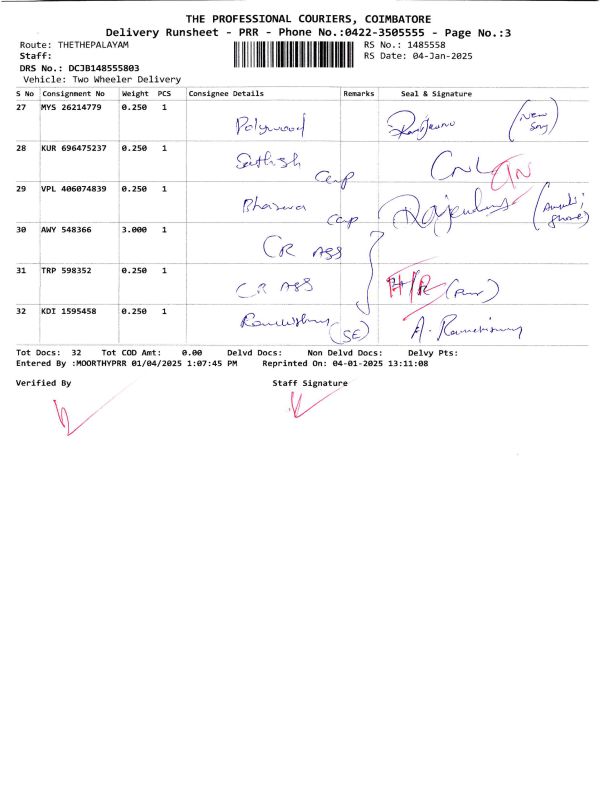 THE PROFESSIONAL COURIERS, COIMBATORE
Delivery Runsheet - PRR - Phone No.:0422-3505555 - Page No.:3
Route: THETHEPALAYAM RS No.: 1485558
Staff: RS Date: 04-Jan-2025
DRS No.: DCJB148555803
Vehicle: Two Wheeler Delivery
S No Consignment No Weight PCS Consignee Details Remarks Seal & Signature
27 MYS 26214779 0.250 1 Polywood
28 KUR 696475237 0.250 1 Sathish
29 VPL 406074839 0.250 1 Rajendran
30 AWY 548366 3.000 1 CR ASS
31 TRP 598352 0.250 1 CR ASS H/R
32 KDI 1595458 0.250 1 (SE)
Tot Docs: 32 Tot COD Amt: 0.00 Delvd Docs: Non Delvd Docs: Delvy Pts:
Entered By :MOORTHYPRR 01/04/2025 1:07:45 PM Reprinted On: 04-01-2025 13:11:08
Verified By Staff Signature